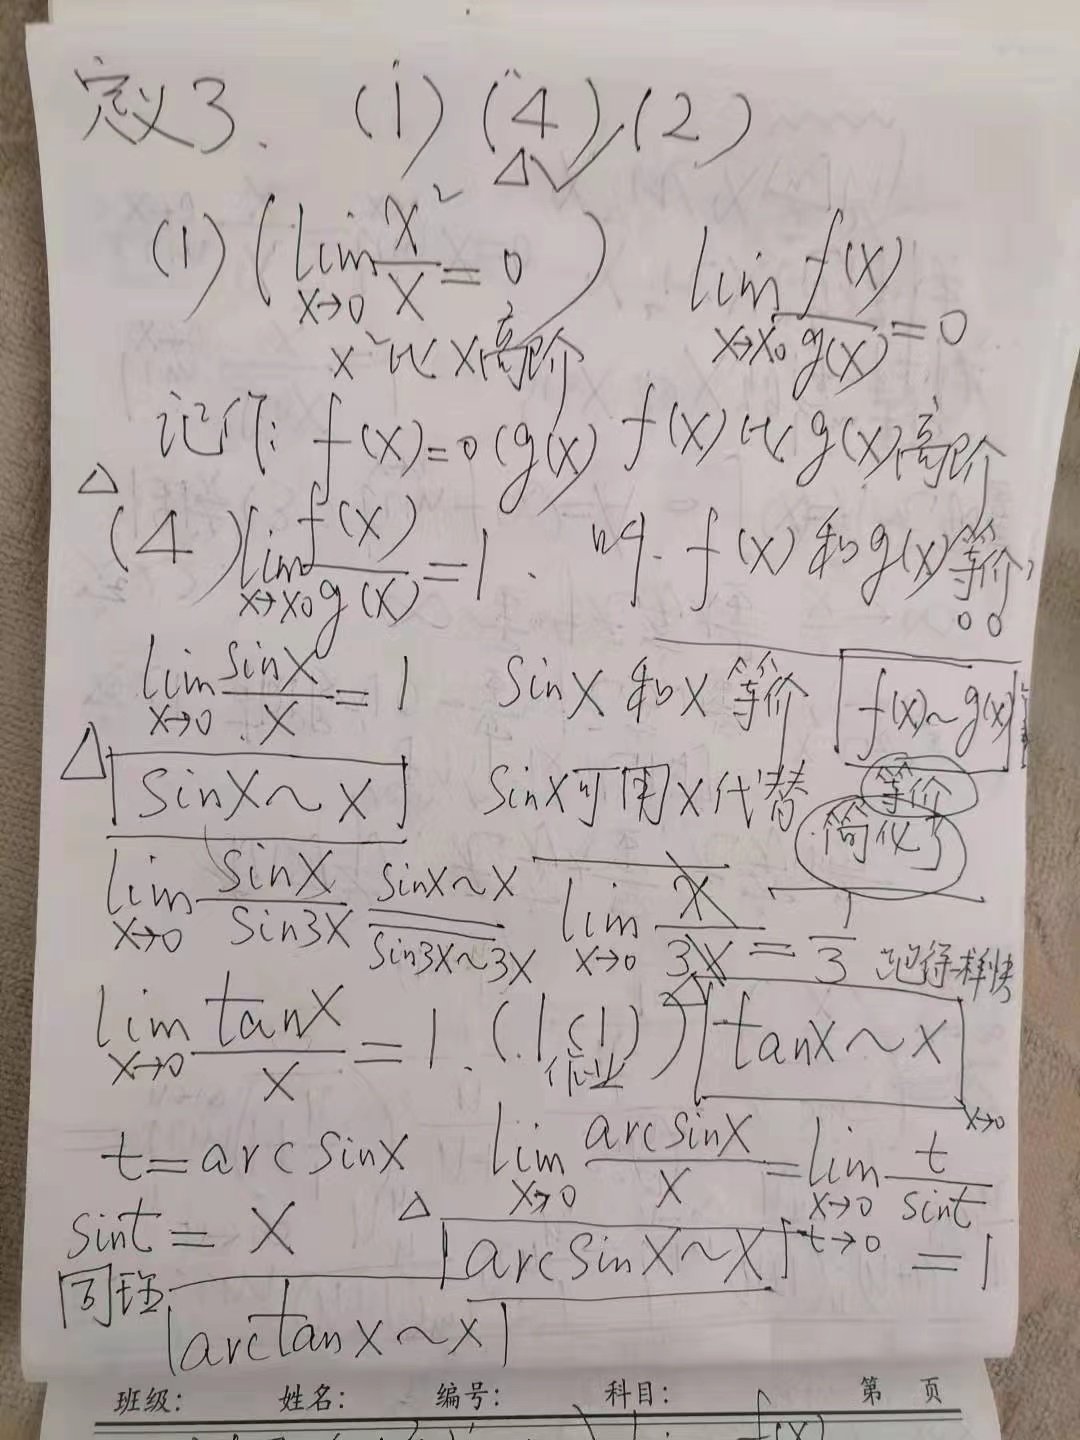 定义3. (1) (4), (2)
(1) (lim x→0 x²/x = 0) lim x→x0 f(x)/g(x) = 0
x²比x高阶
记作: f(x)=o(g(x) f(x)比g(x)高阶
△ (4) lim x→x0 f(x)/g(x) = 1. 叫. f(x)和g(x)等价,
lim x→0 sinx/x = 1 sinx和x等价 f(x)~g(x)
△ sinx~x sinx可用x代替 等价
简化了
lim x→0 sinx/sin3x = sinx~x sin3x~3x lim x→0 x/3x = 1/3 跑得一样快
lim x→0 tanx/x = 1. (1<1>) 作业 △ tanx~x x→0
t=arcsinx lim x→0 arcsinx/x = lim x→0 t→0 t/sint = 1
sint=x △ arcsinx~x
同理 arctanx~x
班级: 姓名: 编号: 科目: 第 页
f(x)